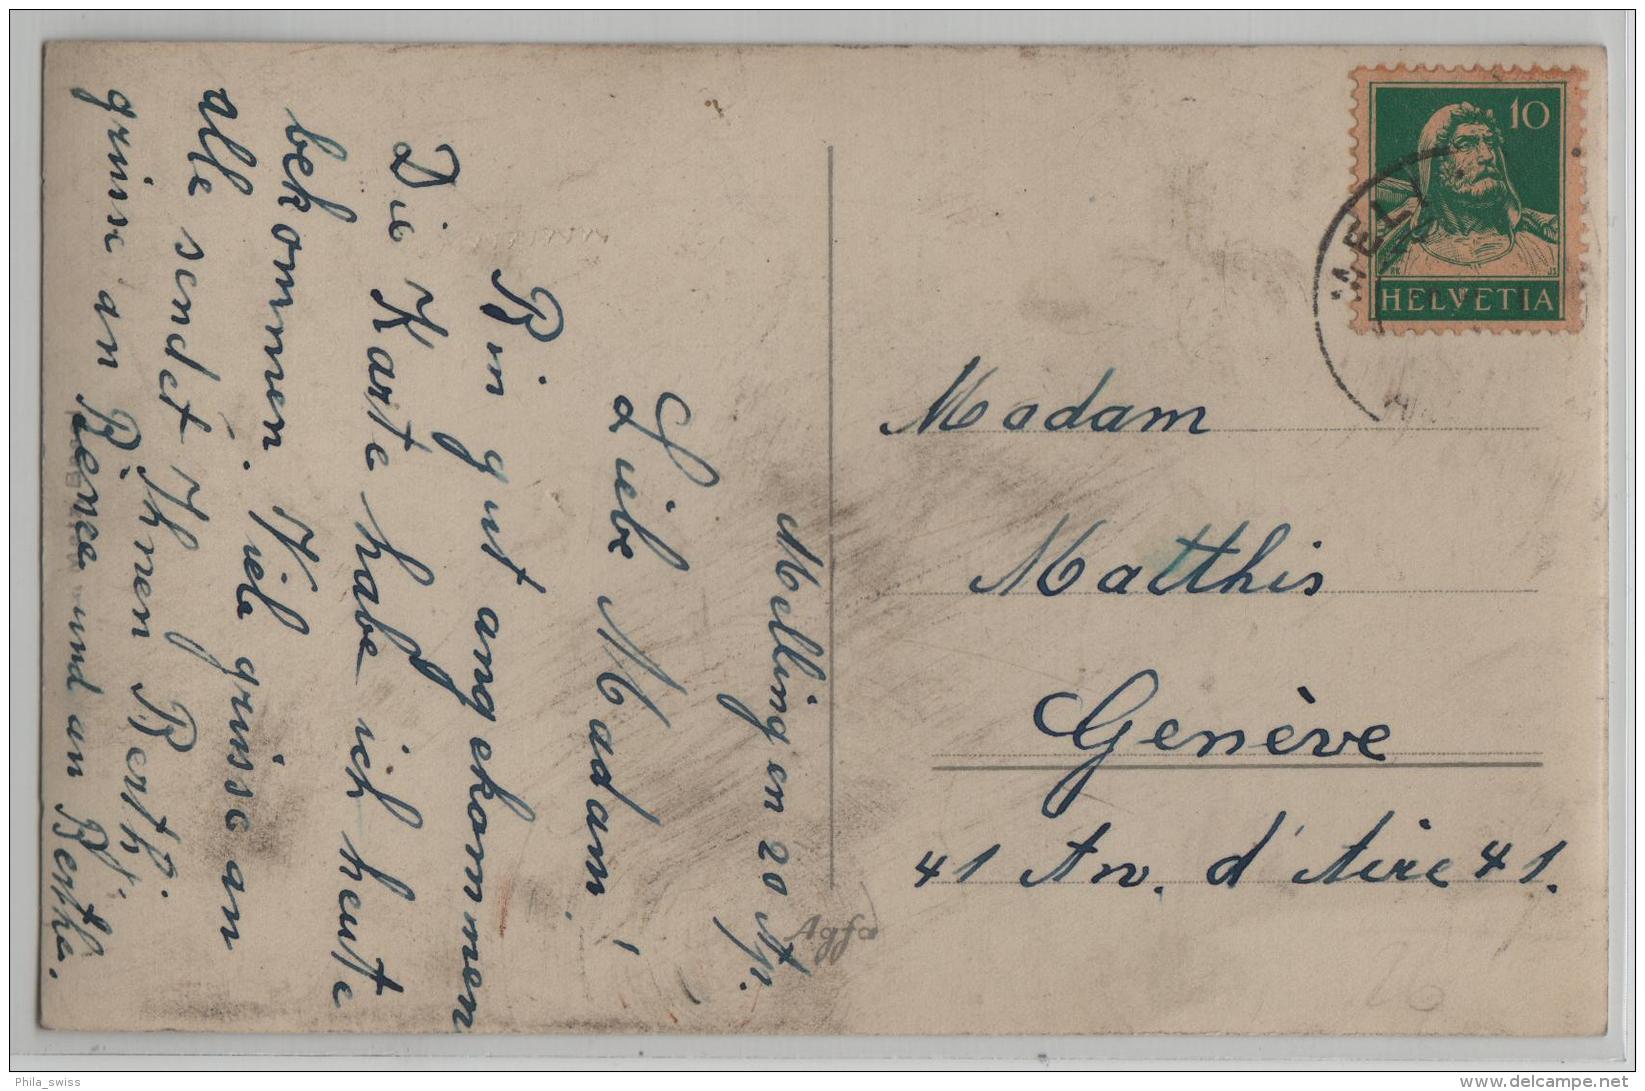 Mellingen 20 Ap.
Liebe Madam!
Bin gut angekommen
Die Karte habe ich heute
bekommen. Viele grüsse an
alle sendet Ihnen Berthi.
grüsse an Renée und an Berthe.
Agfa
10
HELVETIA
MELL
Madam
Matthis
Genève
41 Av. d'Aire 41.
26
Phila_swiss
delcampe.net